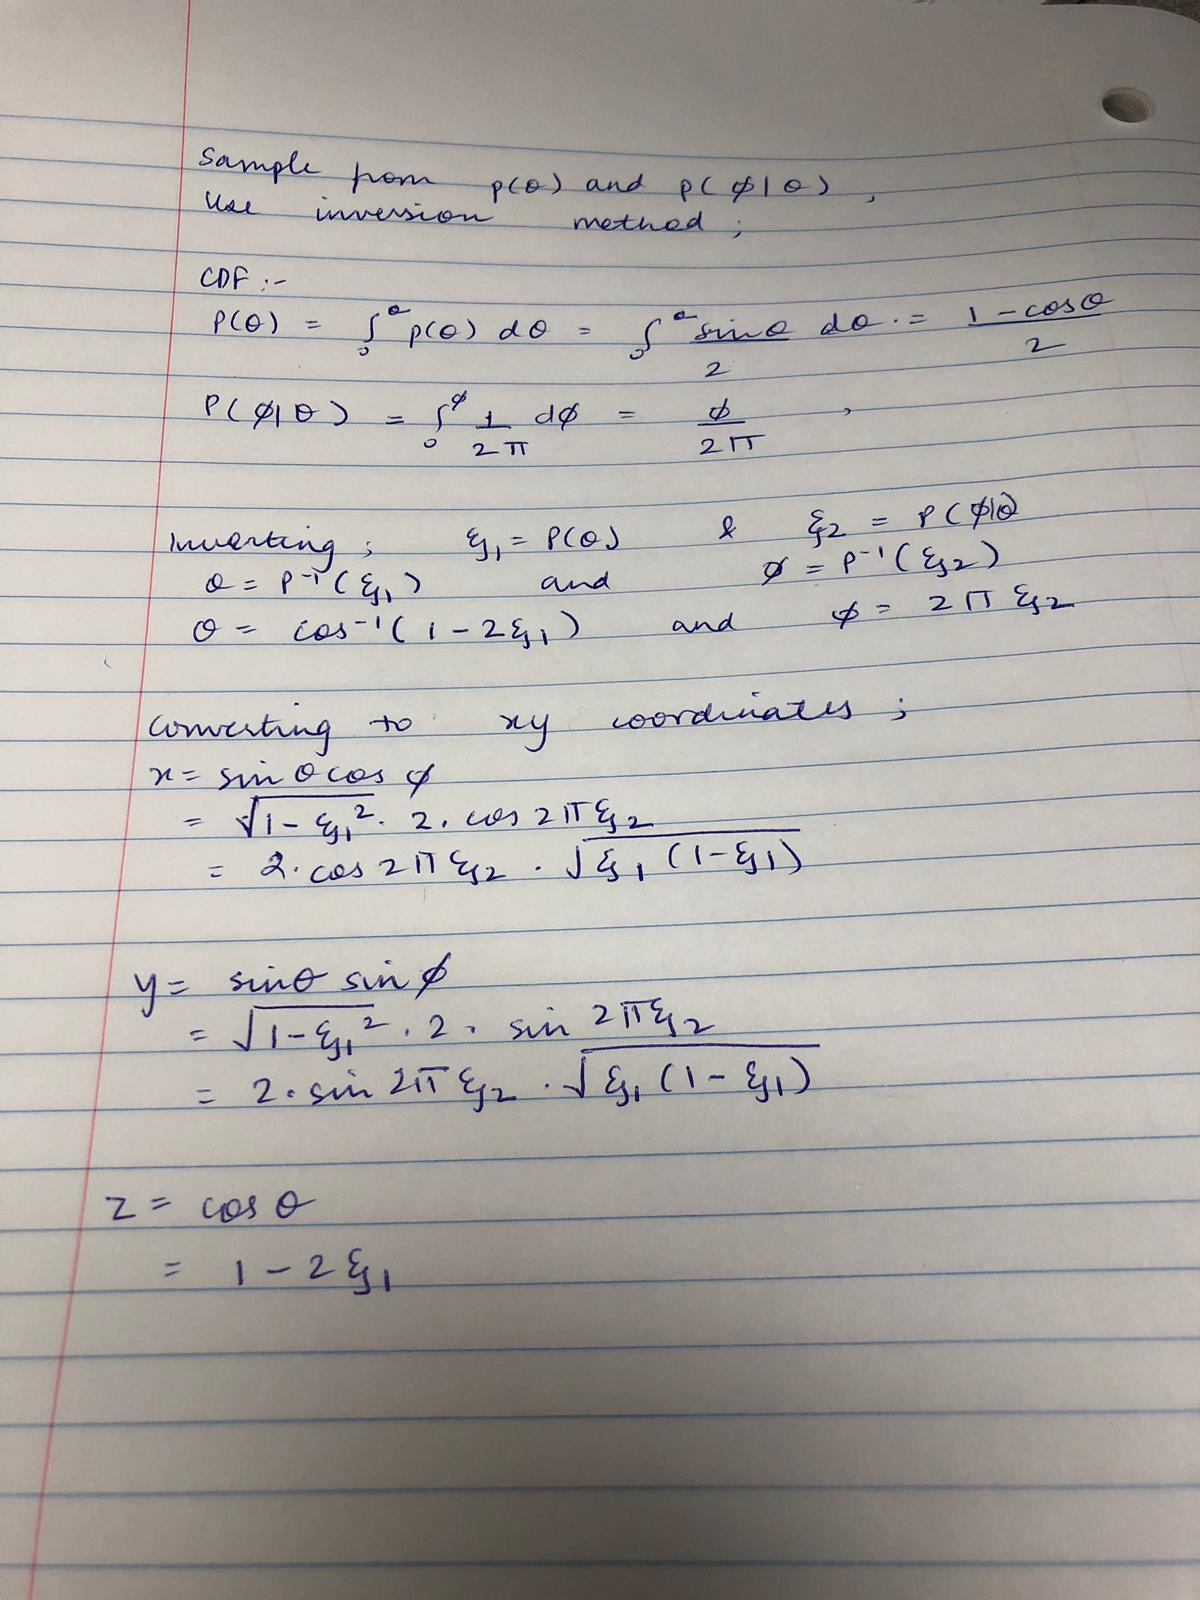 Sample from p(θ) and p(ϕ|θ),
Use inversion method;
CDF :-
P(θ) = ∫₀^θ p(θ) dθ = ∫₀^θ sinθ/2 dθ. = (1-cosθ)/2
P(ϕ|θ) = ∫₀^ϕ 1/2π dϕ = ϕ/2π ,
Inverting; ξ₁ = P(θ) & ξ₂ = P(ϕ|θ
θ = P⁻¹(ξ₁) and ϕ = P⁻¹(ξ₂)
θ = cos⁻¹(1-2ξ₁) and ϕ = 2πξ₂
Converting to xy coordinates;
x = sinθcosϕ
= √(1-ξ₁²). 2. cos2πξ₂
= 2.cos2πξ₂ . √(ξ₁(1-ξ₁))
y = sinθ sinϕ
= √(1-ξ₁²) . 2 . sin 2πξ₂
= 2.sin 2πξ₂ . √(ξ₁(1-ξ₁))
z = cosθ
= 1-2ξ₁